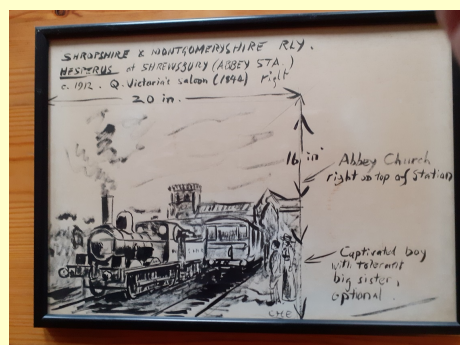 SHROPSHIRE & MONTGOMERYSHIRE RLY.
HESPERUS at SHREWSBURY (ABBEY STA.)
c. 1912. Q. Victoria's saloon (1844) right
20 in.
16 in
Abbey Church
right on top of Station
Captivated boy
with tolerant
big sister,
optional.
CHE